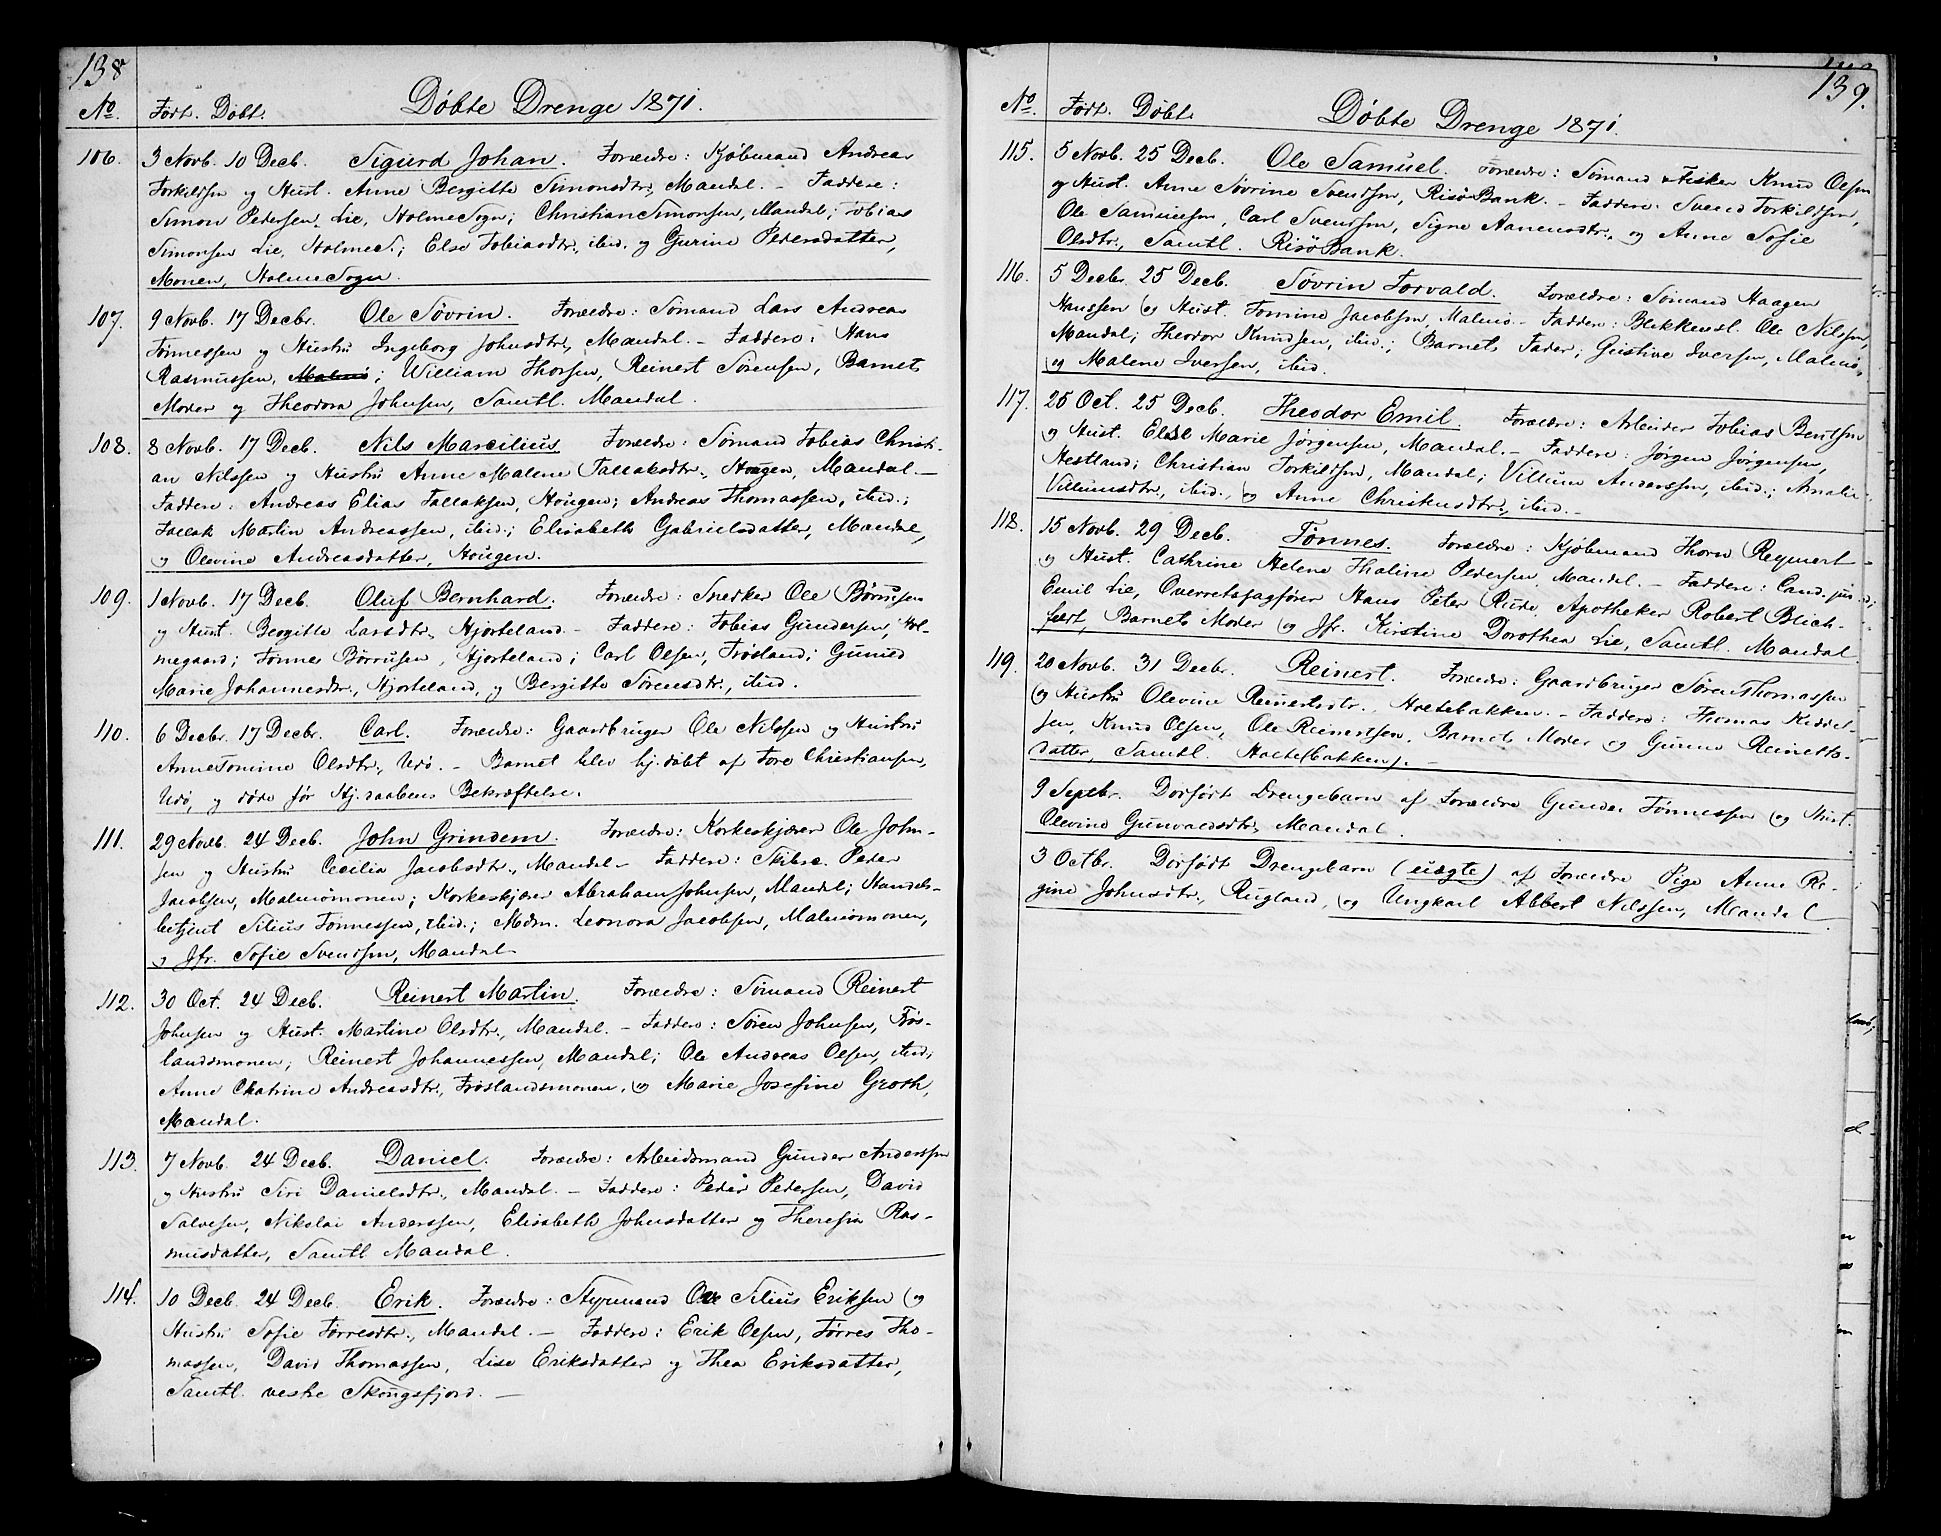 138
No. Født. Døbt. Döbte Drenge 1871.
106. 3 Novb. 10 Decb. Sigurd Johan. Forældre: Kjøbmand Andreas
Torkildsen og Hust. Anne Bergitte Simonsdtr., Mandal. – Faddere:
Simon Pedersen Lie, Holme Sogn; Christian Simonsen, Mandal; Tobias
Simonsen Lie, Holme S.; Else Tobiasdtr., ibid. og Gurine Pedersdatter,
Monen, Holme Sogn.
107. 9 Novb. 17 Decbr. Ole Sövrin. Forældre: Sömand Lars Andreas
Tønnessen og Hustru Ingeborg Johnsdtr., Mandal. – Faddere: Hans
Rasmussen, Malmö; William Thorsen, Reinert Sörensen, Barnets
Moder og Theodora Johnsen, Samtl. Mandal.
108. 8 Novb. 17 Decb. Nils Marcilius Forældre: Sömand Tobias Christi-
an Nilssen og Hustru Anne Malene Tallaksdtr., Hougen, Mandal. –
Faddere: Andreas Elias Tallaksen, Hougen; Andreas Thomassen, ibid.;
Tallak Martin Andreassen, ibid.; Elisabeth Gabrielsdatter, Mandal,
og Olevine Andreasdatter, Hougen.
109. 1 Novb. 17 Decb. Oluf Bernhard. Forældre: Snedker Ole Børrusen
og Hust. Bergitte Larsdtr., Hjorteland. – Faddere: Tobias Gundersen, Hol-
megaard; Tønnes Børrusen, Hjorteland; Carl Olsen, Frøsland; Gunild
Marie Johannesdtr., Hjorteland, og Bergitte Sörensdtr., ibid.
110. 6 Decbr. 17 Decbr. Carl. Forældre: Gaardbruger Ole Nilssen og Hustru
Anne Tomine Olsdtr., Udö. – Barnet blev hj.døbt af Tore Christiansen,
Udö, og döde før Hj.daabens Bekræftelse.
111. 29 Novb. 24 Decb. John Grindem. Forældre: Korkeskjærer Ole John-
sen og Hustru Cecilia Jacobsdtr., Mandal. – Faddere: Skibsc. Peder
Jacobsen, Malmömonen; Korkeskjærer Abraham Johnsen, Mandal; Handels-
betjent Silius Tønnessen, ibid.; Mdm. Leonora Jacobsen, Malmömonen,
og Jfr. Sofie Svendsen, Mandal.
112. 30 Oct. 24 Decb. Reinert Martin. Forældre: Sömand Reinert
Johnsen og Hust. Martine Olsdtr., Mandal. – Faddere: Sören Johnsen, Frøs-
landsmonen; Reinert Johannessen, Mandal; Ole Andreas Olsen, ibid;
Anne Chatrine Andreasdtr., Frøslandsmonen, og Marie Josefine Groth,
Mandal.
113. 7 Novb. 24 Decb. Daniel. Forældre: Arbeidsmand Gunder Anderssen
og Hustru Siri Danielsdtr., Mandal. – Faddere: Peder Pedersen, David
Salvesen, Nikolai Anderssen, Elisabeth Johnsdatter og Theresia Ras-
musdatter, Samtl. Mandal.
114. 10 Decb. 24 Decb. Erik. Forældre: Styrmand Ove Silius Eriksen og
Hustru Sofie Tørresdtr., Mandal. – Faddere: Erik Olsen, Tørres Tho-
massen, David Thomassen, Lise Eriksdatter og Thea Eriksdatter,
Samtl. vestre Skougsfjord. –
139.
No. Født. Døbt. Döbte Drenge 1871.
115. 5 Novb. 25 Decb. Ole Samuel. Forældre: Sömand & Fisker Knud Olsen
og Hust. Anne Sövrine Svendsen, RisöBank. – Faddere: Svend Torkildsen,
Ole Samuelsen, Carl Svendsen, Signe Aanensdtr., og Anne Sofie
Olsdtr., Samtl. RisöBank.
116. 5 Decbr. 25 Decb. Sövrin Torvald. Forældre: Sömand Haagen
Hanssen og Hust. Tomine Jacobsen, Malmö – Faddere: Blikkensl. Ole Nilssen,
Mandal; Theodor Knudsen, ibid.; Barnets Fader; Gustive Iversen, Malmö,
og Malene Iversen, ibid.
117. 25 Oct. 25 Decb. Theodor Emil. Forældre: Arbeider Tobias Bentsen
og Hust. Else Marie Jørgensen, Mandal. – Faddere: Jørgen Jørgensen,
Hestland; Christian Torkildsen, Mandal; Villum Anderssen, ibid.; Amalie
Villumsdtr., ibid., og Anne Christensdtr., ibid. –
118. 15 Novb. 29 Decb. Tønnes. Forældre: Kjøbmand Thorn Reqvert
og Hust. Cathrine Helene Thaline Pedersen, Mandal. – Faddere: Cand. jur.
Emil Lie, Overretssagfører Hans Peter Rude, Apotheker Robert Blich-
feldt, Barnets Moder og Jfr. Kirstine Dorothea Lie, Samtl. Mandal.
119. 20 Novb. 31 Decbr. Reinert. Forældre: Gaardbruger Sören Thomassen
og Hustru Olevine Reinertsdtr., Holtebakken. – Faddere: Thomas Keddel-
sen, Knud Olsen, Ole Reinertsen, Barnets Moder og Gunne Reinerts-
datter, Samtl. Holtebakken. –
9 Septbr. Dödfødt Drengebarn af Forældre Gunder Tønnessen og Hust.
Olevine Gunvaldsdtr., Mandal.
3 Octbr. Dödfødt Drengebarn (uægte) af Forældre Pige Anne Re-
gine Johnsdtr., Rugland, og Ungkarl Abbert Nilssen, Mandal.